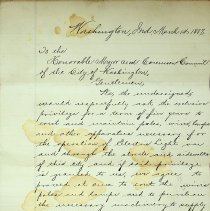 Washington, Ind. March 14, 1887
To the
Honorable Mayor and Common Council
of the City of Washington,
Gentlemen,
We the undersigned
would respectfully ask the exclusive
privilege for a term of five years to
erect and maintain poles, wires, lamps
and other apparatus necessary for
the operation of Electric Light over
and through the streets and sidewalks
of this city and if said privilege
is granted to us, we agree to
proceed at once to erect the wires
poles and lamps and to purchase
the necessary machinery to supply